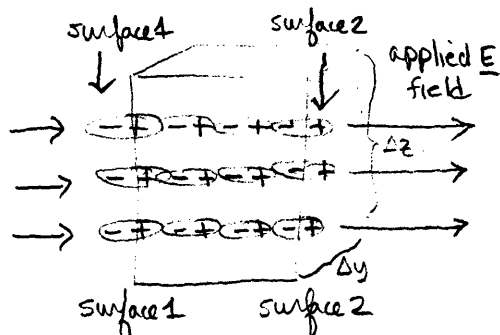 surface1 surface2
applied E
field
- + - + - + - +
Δz
- + - + - + - +
- + - + - + - +
Δy
surface1 surface2